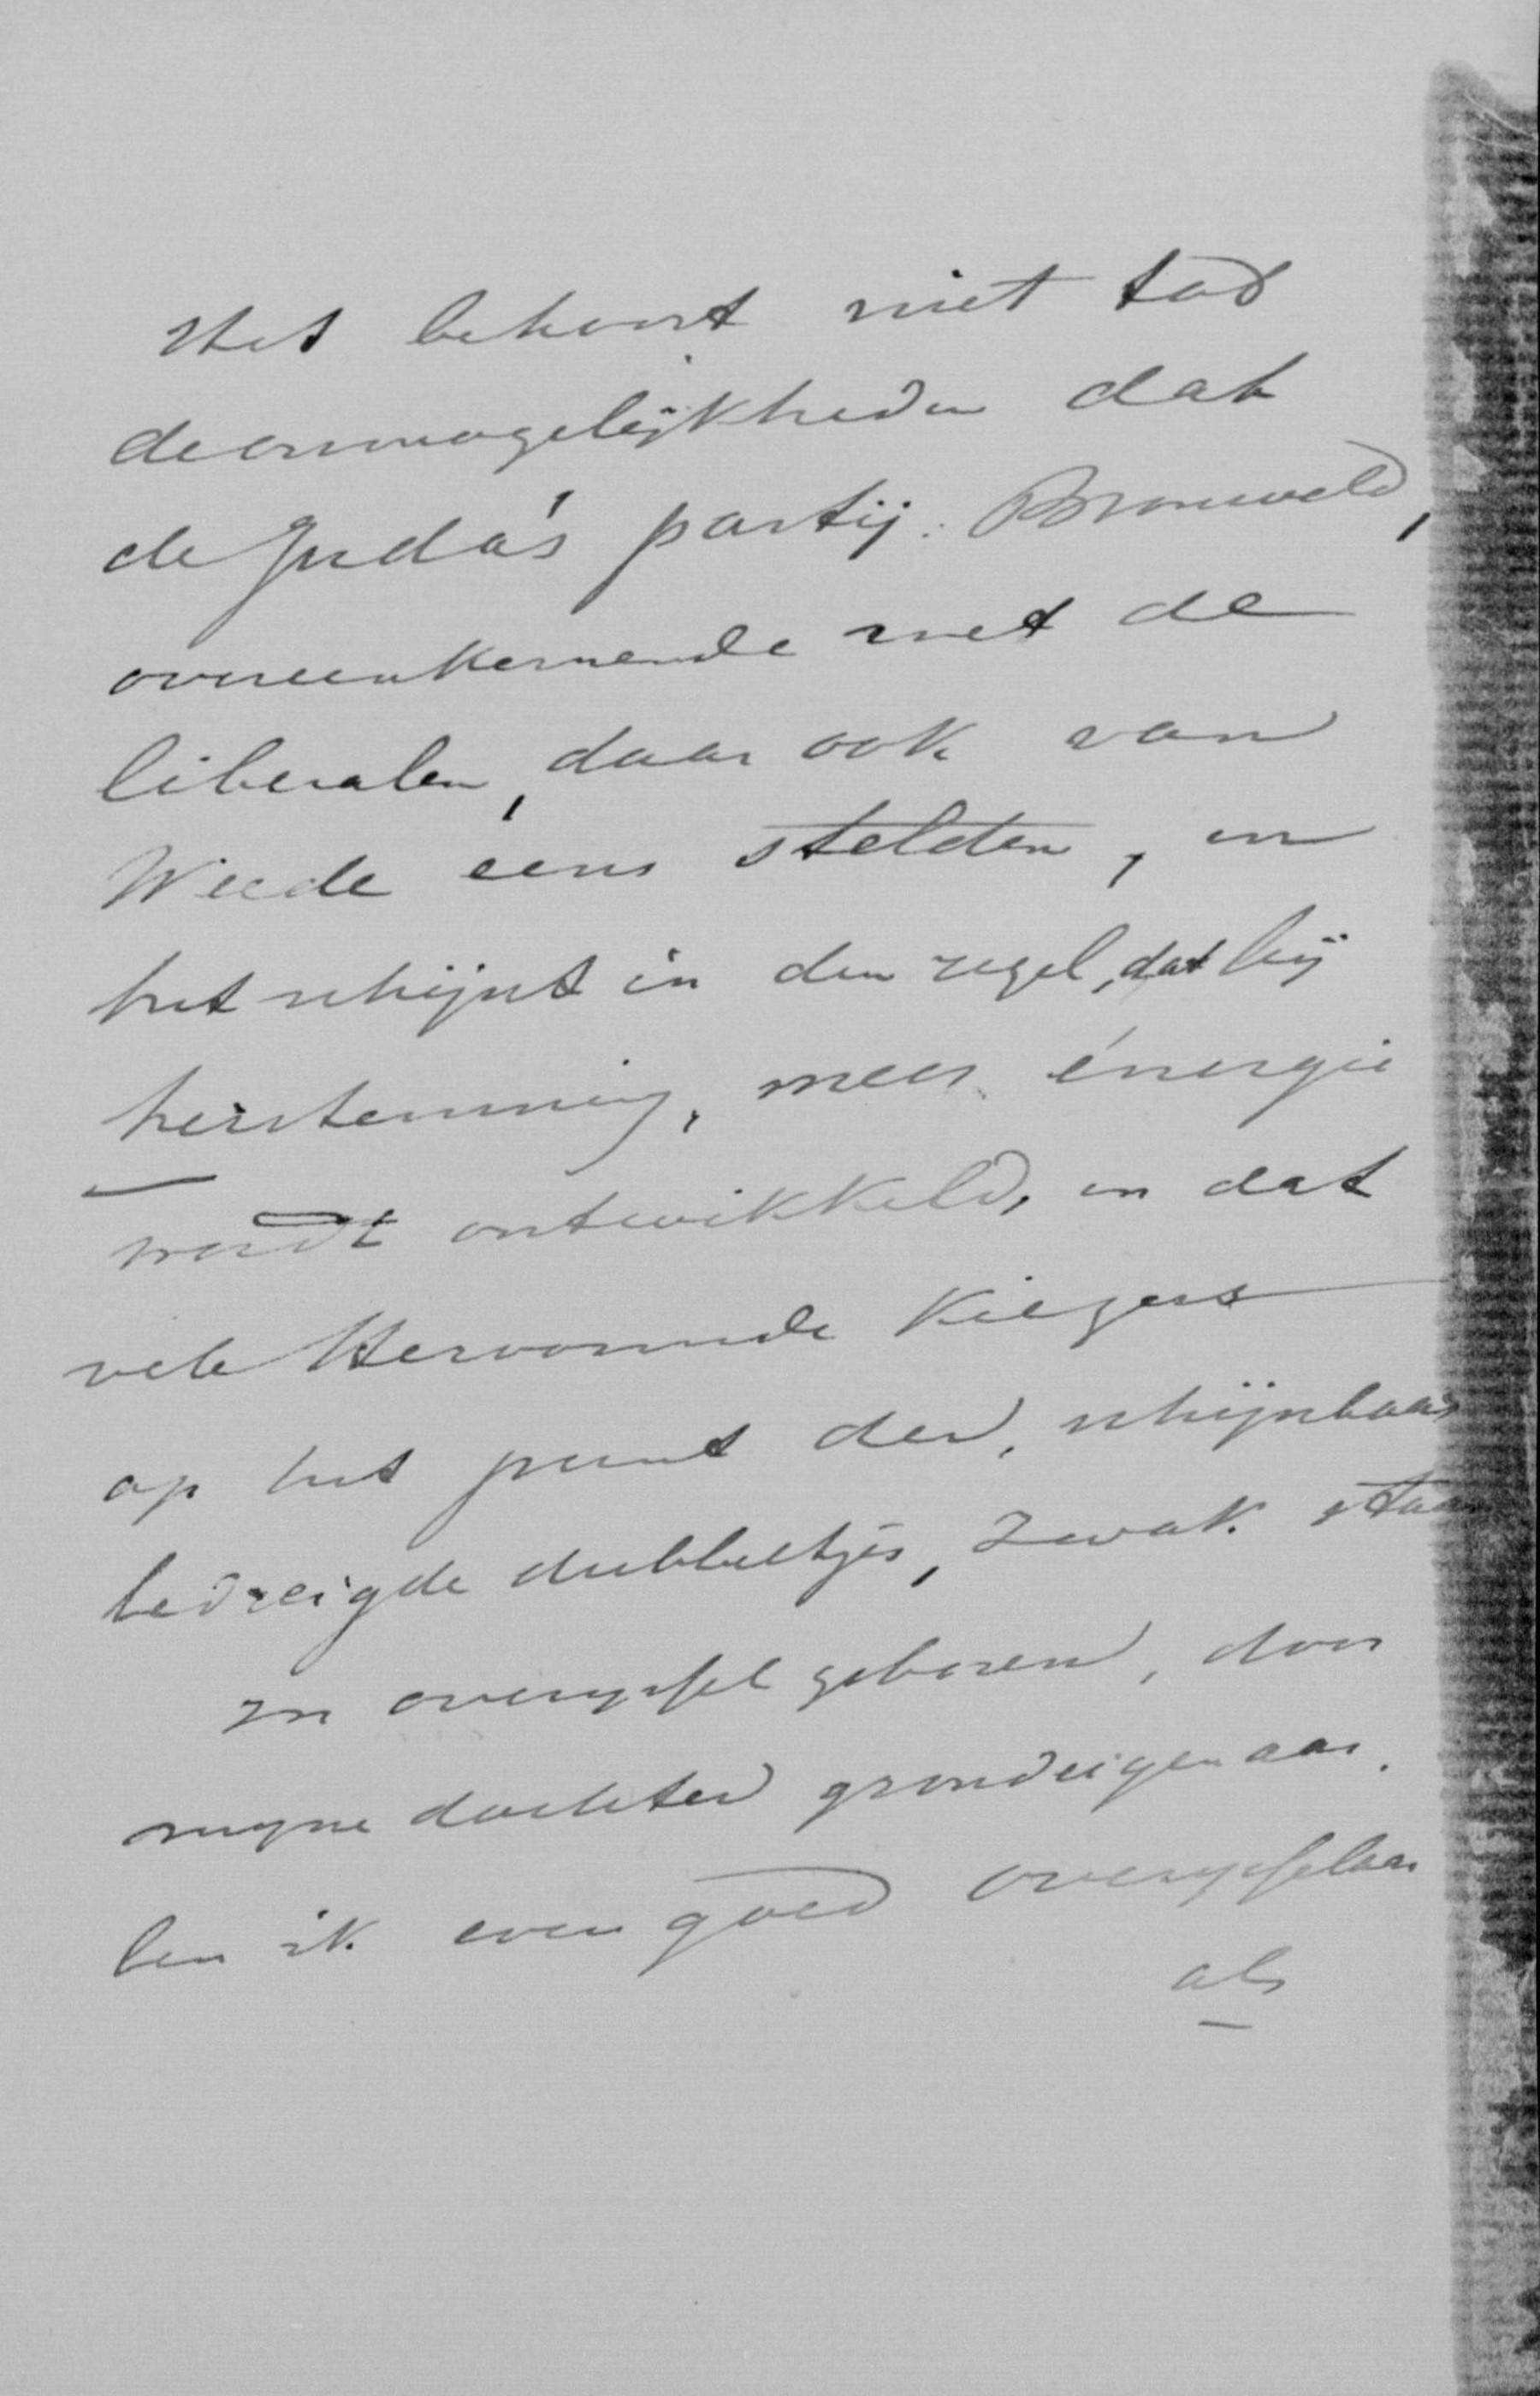 Het behoort niet tot
de onmogelijkheden dat
de Juda's partij: Bronsveld,
overeenkomende met de
liberalen, daar ook van
Weede eens stelden, en
het schijnt in den regel, dat bij
herstemming, meer énergie
wordt ontwikkeld, en dat
vele Hervormde Kiezers
op het punt der, schijnbaar
bedreigde dubbeltjes, zwak staan
In overyssel geboren, door
myne dochter grondeigenaar.
ben ik even goed overysselaar
als